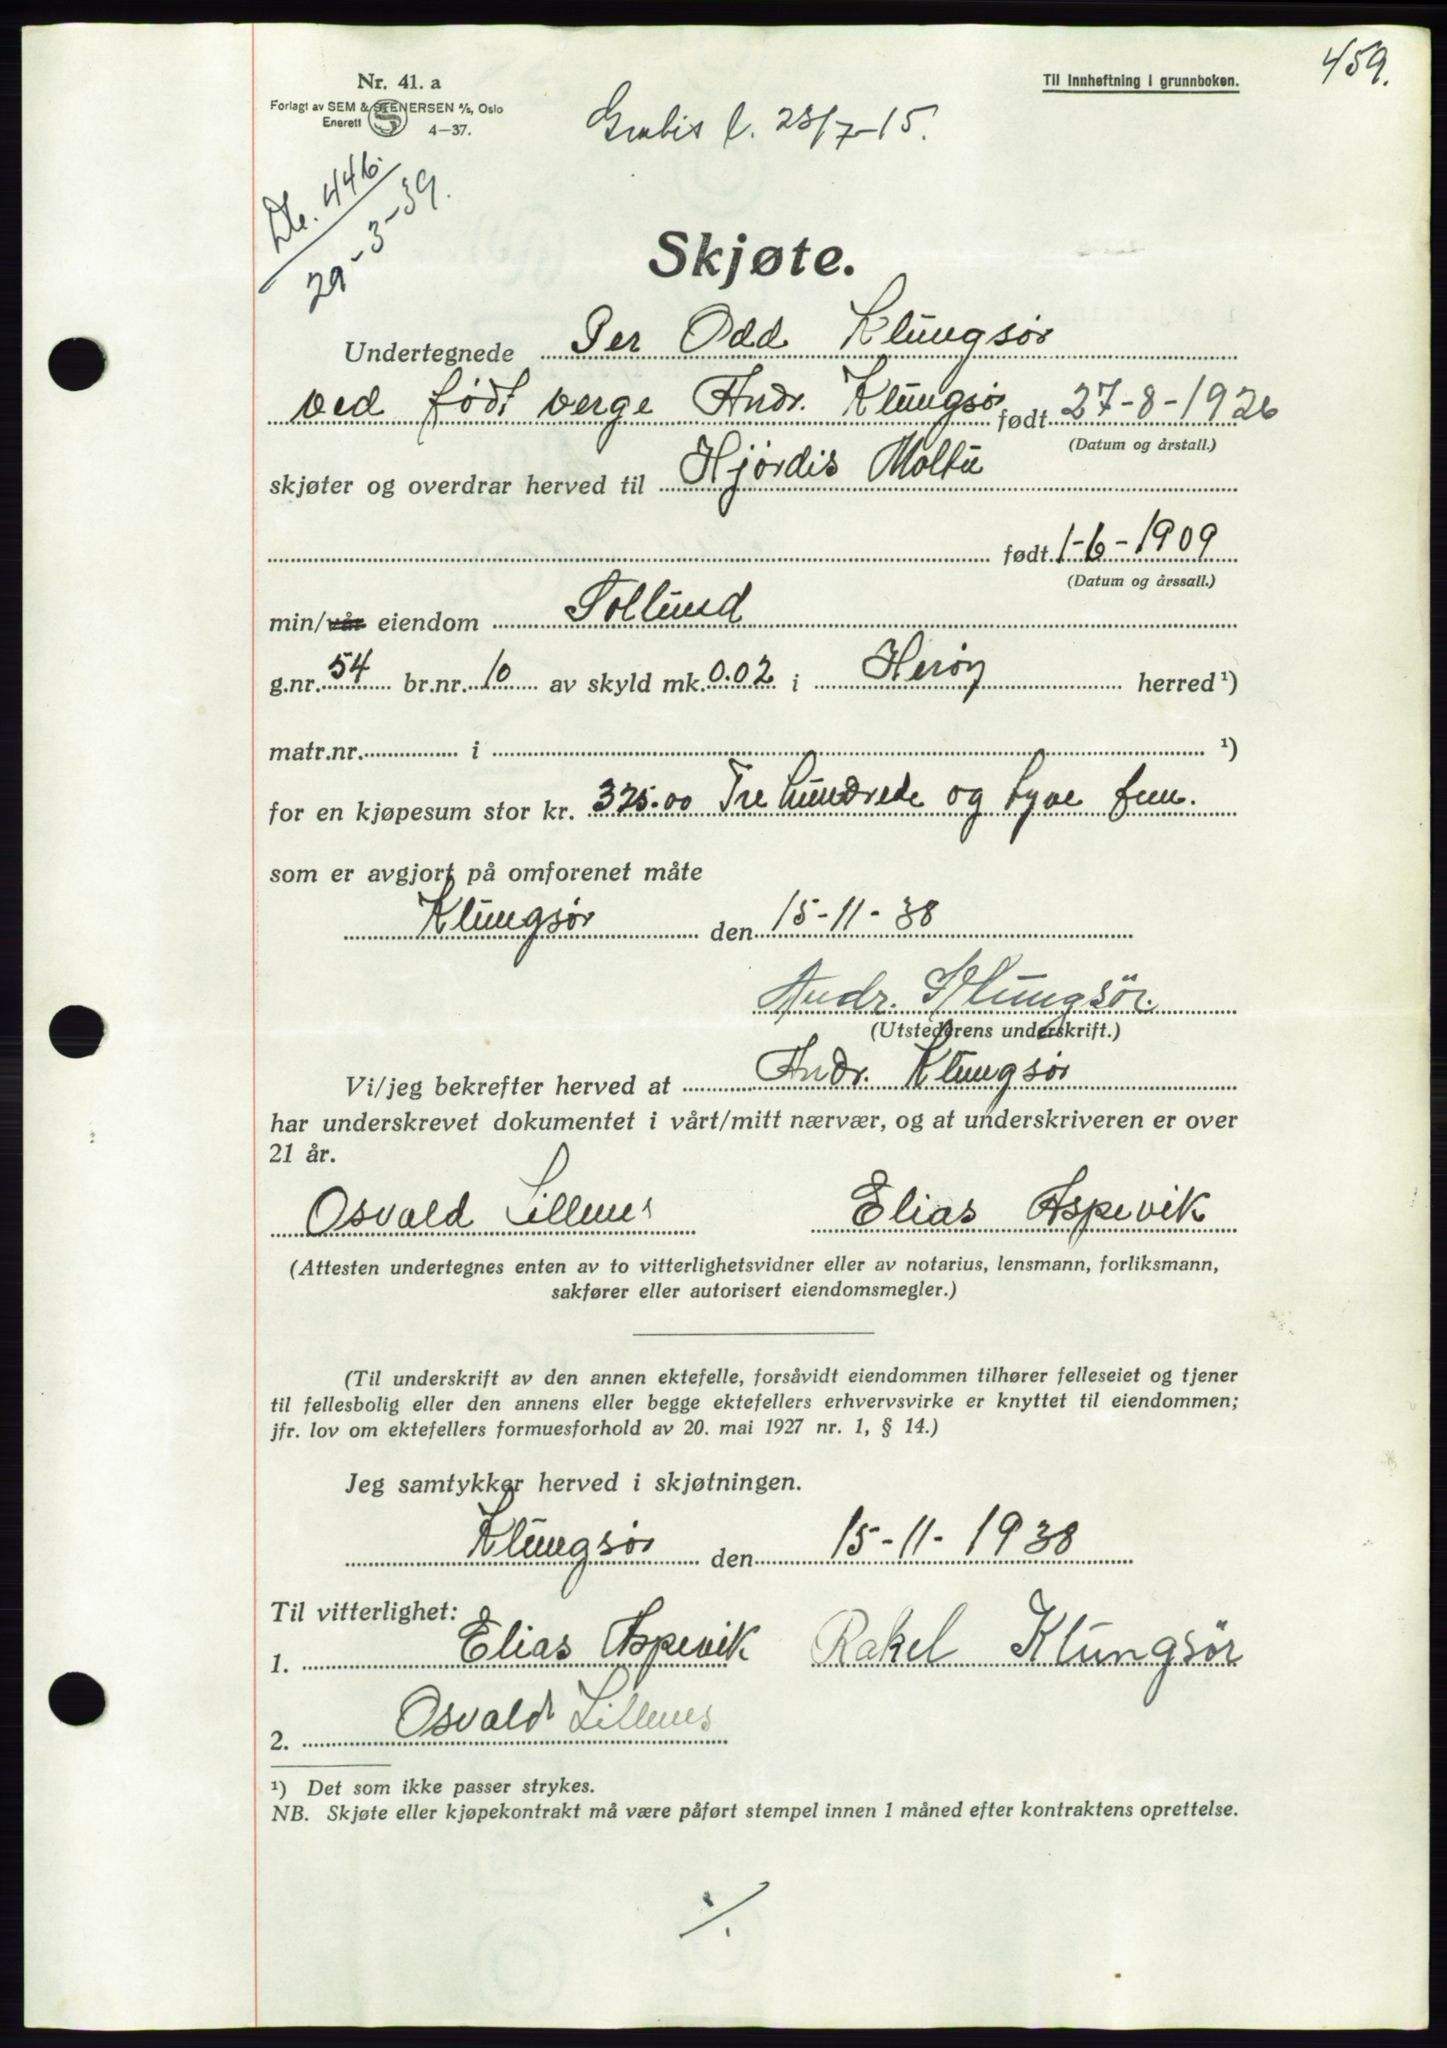 459.
Nr. 41. a
Til innheftning i grunnboken.
Forlagt av SEM & STENERSEN A/S, Oslo
Enerett 4—37.
l. 23/7-15.
446
29-3-39.
Skjøte.
Undertegnede Per Odd Klungsør
ved født verge Andr. Klungsør født 27-8-1926
(Datum og årstall.)
skjøter og overdrar herved til Hjørdis Moltu
født 1-6-1909
(Datum og årssall.)
min/vår eiendom Sollund
g.nr. 54 br.nr. 10 av skyld mk. 0.02 i Herøy herred ¹)
matr.nr. i ¹)
for en kjøpesum stor kr. 325.00 Tre hundrede og tyve fem.
som er avgjort på omforenet måte
Klungsør den 15-11-38
Andr. Klungsør.
(Utstederens underskrift.)
Vi/jeg bekrefter herved at Andr. Klungsør
har underskrevet dokumentet i vårt/mitt nærvær, og at underskriveren er over
21 år.
Osvald Lillenes Elias Aspevik
(Attesten undertegnes enten av to vitterlighetsvidner eller av notarius, lensmann, forliksmann,
sakfører eller autorisert eiendomsmegler.)
(Til underskrift av den annen ektefelle, forsåvidt eiendommen tilhører felleseiet og tjener
til fellesbolig eller den annens eller begge ektefellers erhvervsvirke er knyttet til eiendommen;
jfr. lov om ektefellers formuesforhold av 20. mai 1927 nr. 1, § 14.)
Jeg samtykker herved i skjøtningen.
Klungsør den 15-11-1938
Til vitterlighet:
1. Elias Aspevik Rakel Klungsør
2. Osvald Lillenes
¹) Det som ikke passer strykes.
NB. Skjøte eller kjøpekontrakt må være påført stempel innen 1 måned efter kontraktens oprettelse.
./.